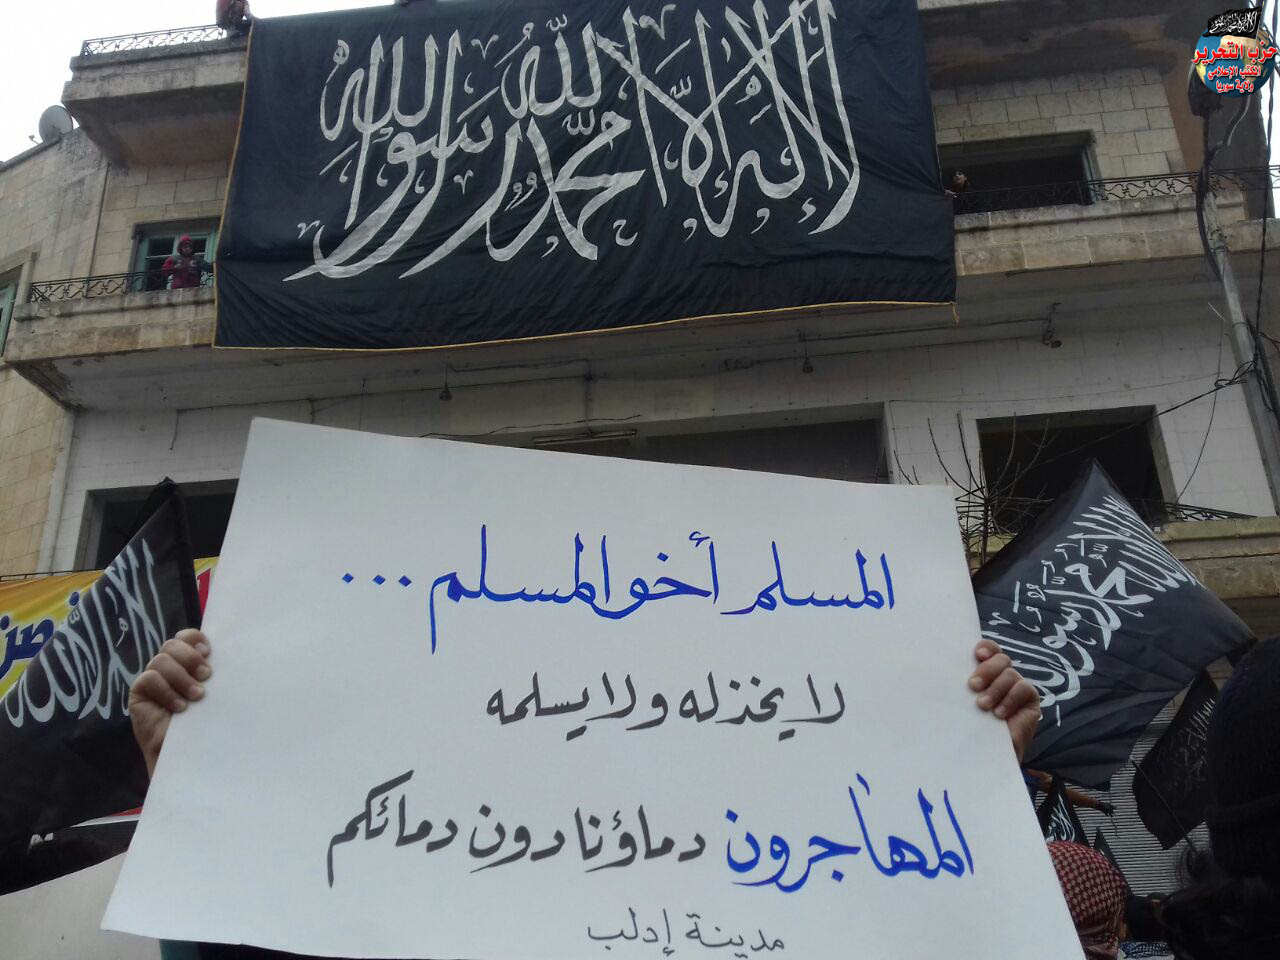 لا إله إلا الله محمد رسول الله
حزب التحرير
المكتب الإعلامي
ولاية سوريا
المسلم أخو المسلم ...
لا يخذله ولا يسلمه
المهاجرون دماؤنا دون دمائكم
مدينة إدلب
لا إله إلا الله
محمد رسول الله